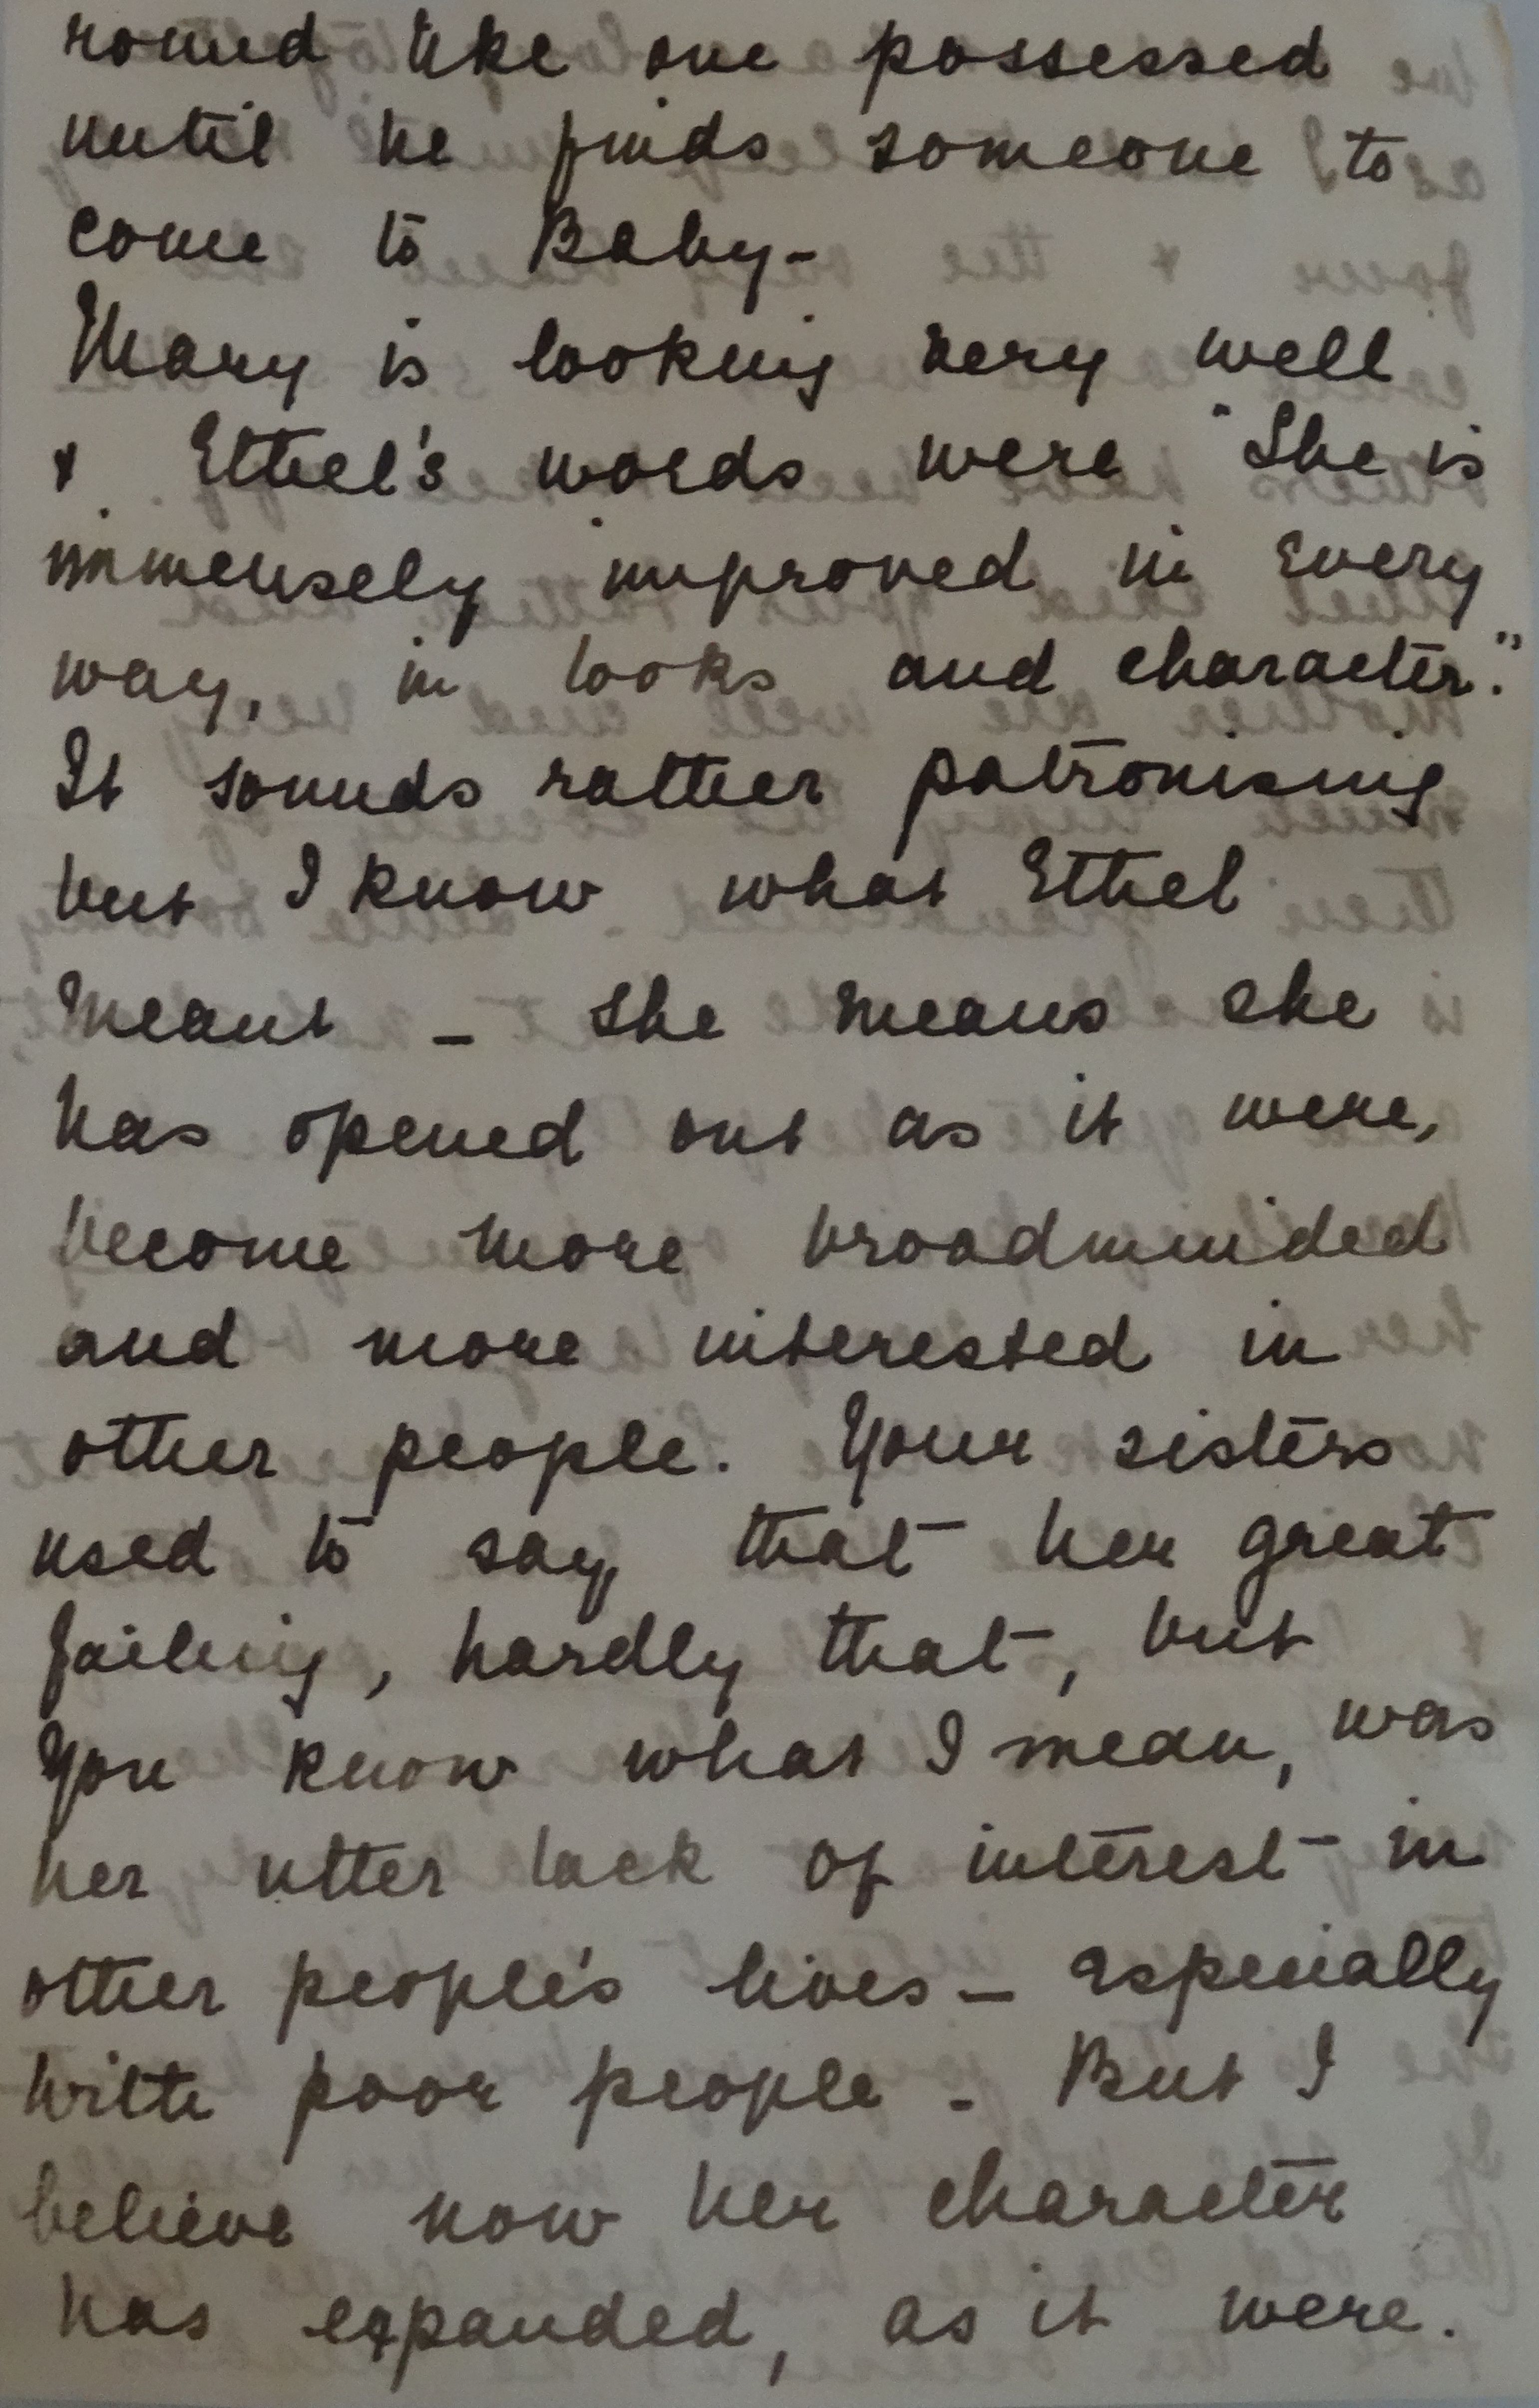 round like one possessed
until he finds someone to
come to Baby -
Mary is looking very well
& Ethel's words were "She is
immensely improved in every
way, in looks and character."
It sounds rather patronising
but I know what Ethel
meant - She means she
has opened out as it were,
become more broadminded
and more interested in
other people. Your sisters
used to say, that her great
failing, hardly that, but
you know what I mean, was
her utter lack of interest in
other people's lives - especially
with poor people - But I
believe now her character
has expanded, as it were.